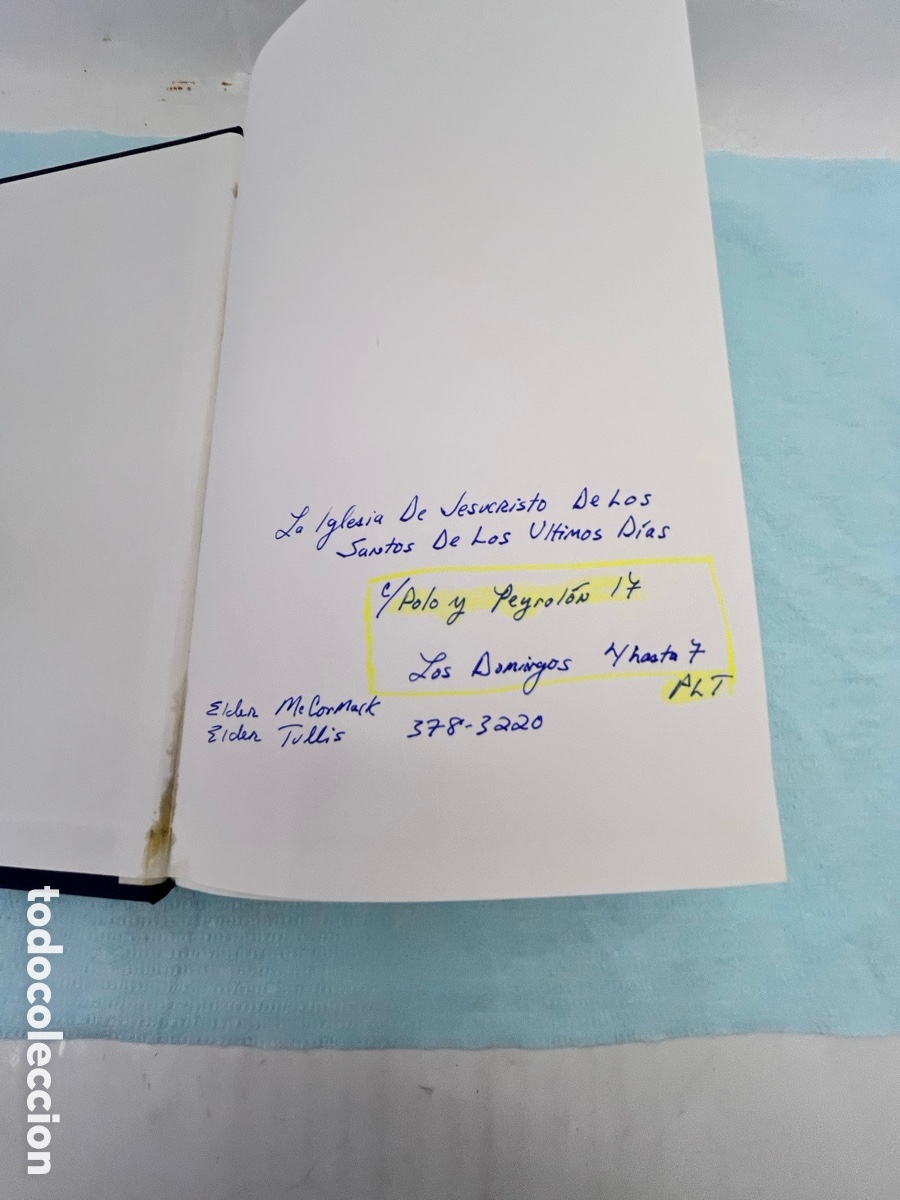 La Iglesia De Jesucristo De Los
Santos De Los Ultimos Días
c/Polo y Peyrolón 17
Los Domingos 4 hasta 7
PLT
Elder McCormack
Elder Tullis 378-3220
todocoleccion